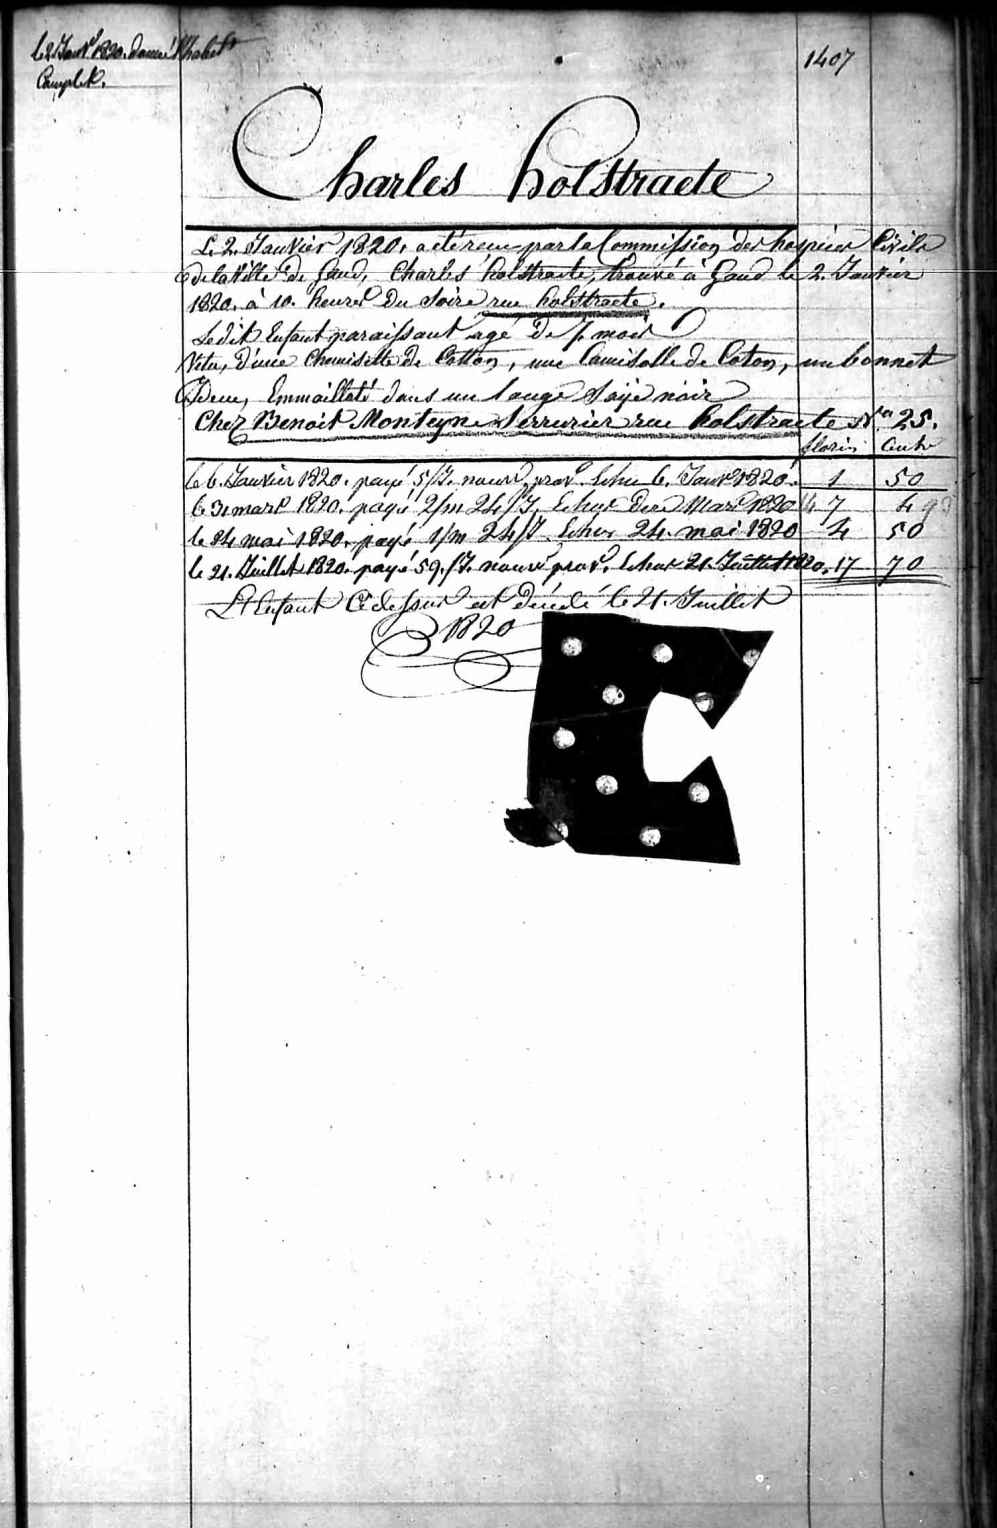 le 2 Janvr 1820. donné l'habet
Complet.
1407
Charles holstraete
Le 2. Janvier 1820. a été reçu par la Commission des hospices Civils
de la Ville de Gand, Charles holstraete, trouvé à Gand le 2. Janvier
1820. à 10. heures Du Soire rue holstraete.
Ledit Enfant paraissant agé De mois
Vetu, D'une Chemisette de Cotton, une Camisolle de Coton, un bonnet
Idem, Emmailloté dans un lange Saye noir
Chez Benoit Monteyne Serrurier rue holstraete No. 25.
florins Cents
le 6. Janvier 1820. payé 5/J. nourr. prov. Echu 6. Janvr 1820. 1 50
le 31 mars 1820. payé 2/m 24/J. Echus Mars 1820 7
le 24 mai 1820. payé 1/m 24/J. Echus 24. mai 1820 4 50
le 21. Juillet 1820. payé 59./J. nourr prov. Echus 21. Juillet 1820. 17 70
L'Enfant Ci dessus est décédé le 21. Juillet
1820